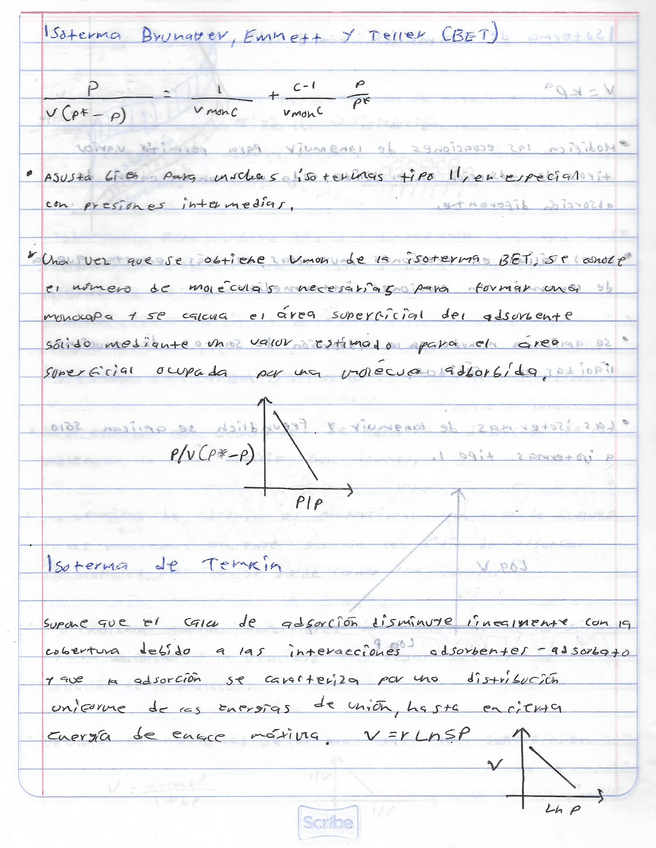 Isoterma Brunauer, Emmett y Teller (BET)
P / V(P* - P) = 1 / VmonC + C-1 / VmonC P / P*
• Ajusta bien para muchas isotermas tipo II, en especial
con presiones intermedias.
• Una vez que se obtiene Vmon de la isoterma BET, se conoce
el número de moléculas necesarias para formar una
monocapa y se calcula el área superficial del adsorbente
sólido mediante un valor estimado para el área
superficial ocupada por una molécula adsorbida.
P/V(P*-P)
P/P
Isoterma de Temkin
Supone que el calor de adsorción disminuye linealmente con la
cobertura debido a las interacciones adsorbentes - adsorbato
y que la adsorción se caracteriza por una distribución
uniforme de las energías de unión, hasta en cierta
energía de enlace máxima. V = r Ln SP
V
Ln P
Scribe